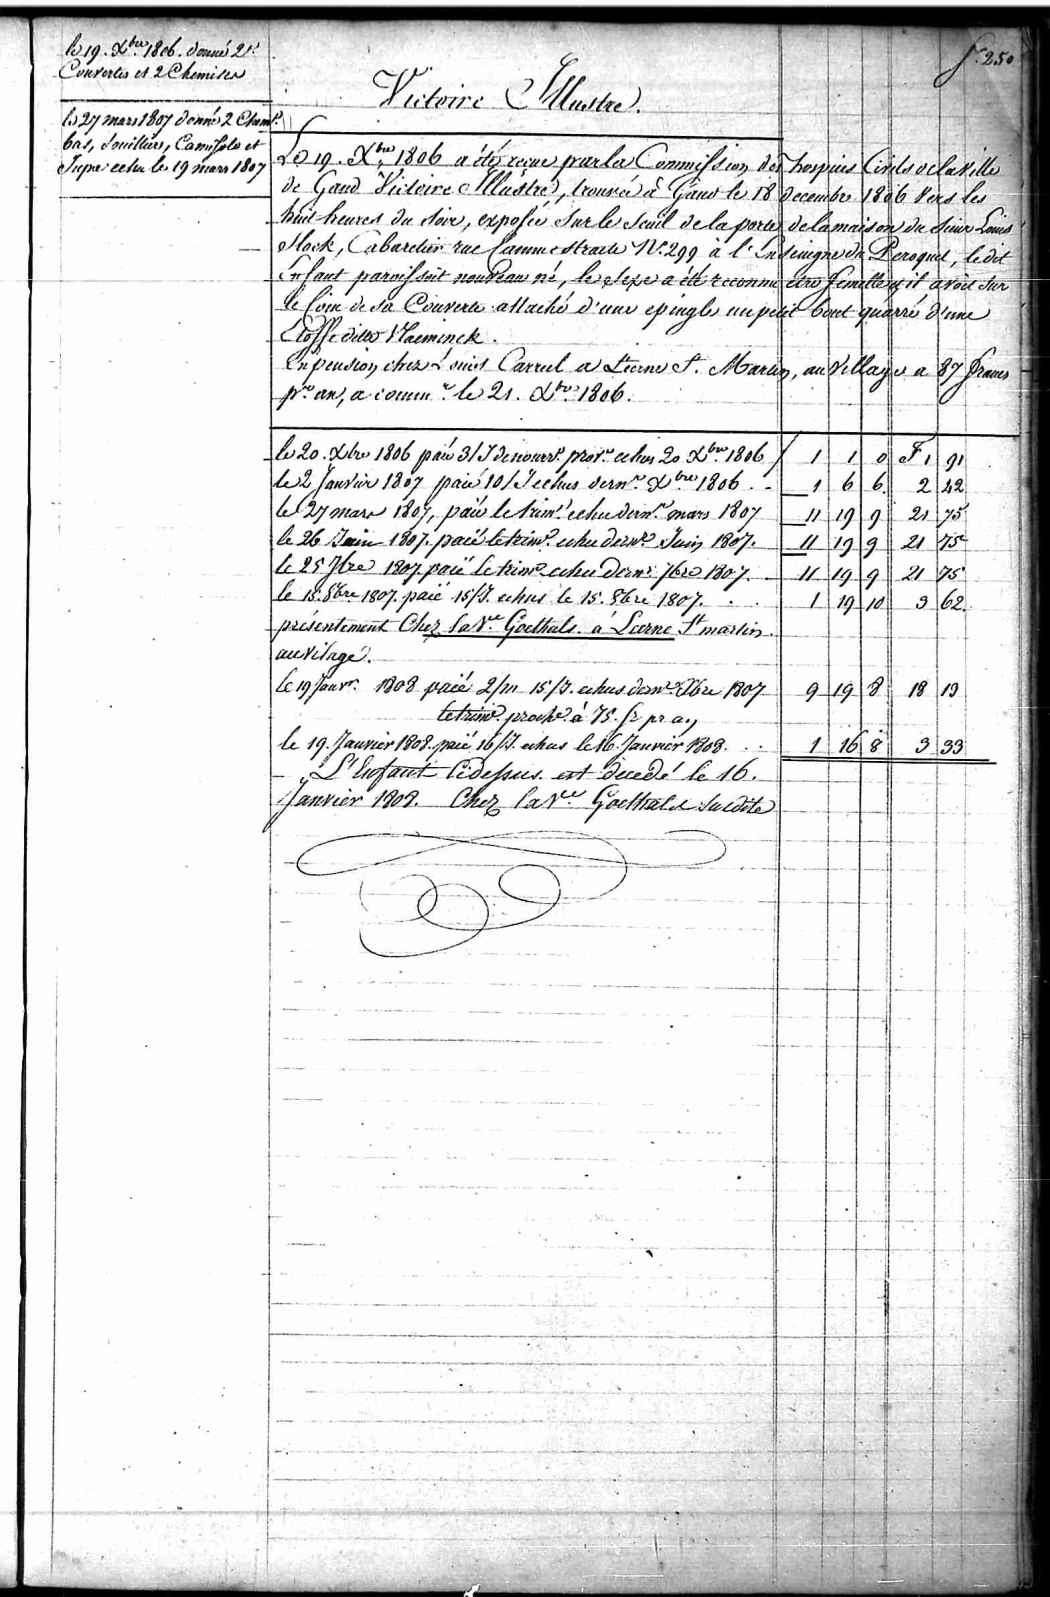 le 19. Xbre 1806. donné 2 l.s
Couvertes et 2 Chemises
le 27 mars 1807 donné 2 Chem.s
bas, Souilliers, Camissole et
Jupe echu le 19 mars 1807
f.o 250
Victoire Illustre.
Le 19. Xbre 1806 a été recue par la Commission des hospices Civils de la Ville
de Gand Victoire Illustre, trouvée à Gand le 18 decembre 1806 vers les
huit heures du Soir, exposée Sur le Seuil de la porte de la maison du Sieur Louis
Stock, Cabaretier rue Samme straete N.o 299 à l'Enseigne du Peroquet, ledit
Enfant paroissoit nouveau né, le Sexe a été reconnu etre femelle et il avoit Sur
le Coin de sa Couverte attaché d'une epingle un petit bout quarré d'une
Etoffe dite Vlaeminck.
En pension chez Louis Carrel a Leerne St. Martin, au Village a 87 francs
pr. an, a comm.r le 21. Xbre 1806.
le 20. Xbre 1806 paié 3/J de nourr.e prov.re echus 20 Xbre 1806 / 1 1 0 F 1 91
le 2 Janvier 1807 paié 10/J echus dern.r Xbre 1806 . - 1 6 6. 2 42
le 27 mars 1807, paié le trim.e echu dern.r mars 1807 11 19 9 21 75
le 26 Juin 1807. paié le trim.e echu dern.r Juin 1807. 11 19 9 21 75
le 25 7bre 1807 paié le trim.e echu dern.r 7bre 1807. 11 19 9 21 75
le 15. 8bre 1807. paié 15/J. echus le 15. 8bre 1807. . . 1 19 10 3 62
présentement Chez la Ve. Goethals. à Leerne St martin.
au vilage.
le 19 Janv.r 1808 paié 2/m 15/J. echus dern.r Xbre 1807 9 19 8 18 13
le trim.e proch.e à 75. fr pr an,
le 19. Janvier 1808. paié 16/J. echus le 16. Janvier 1808. . . 1 16 8 3 33
L'Enfant Cidessus est decedé le 16.
Janvier 1808. Chez la Ve. Goethals Susdite